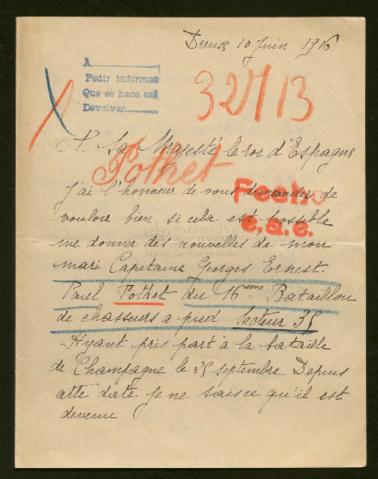 Dreux 10 Juin 1916
A
Pedir informes
Que se haga así
Devolver
32713
A Sa Majesté le roi d'Espagne
Pothet
J'ai l'honneur de vous demander de
Fecho
e.a.e.
vouloir bien, si cela est possible
me donner des nouvelles de mon
mari Capitaine Georges Ernest.
Paul Pothet du 16ème Bataillon
de chasseurs à pied Secteur 35
Ayant pris part à la bataille
de Champagne le 25 septembre Depuis
cette date je ne sais ce qu'il est
devenu